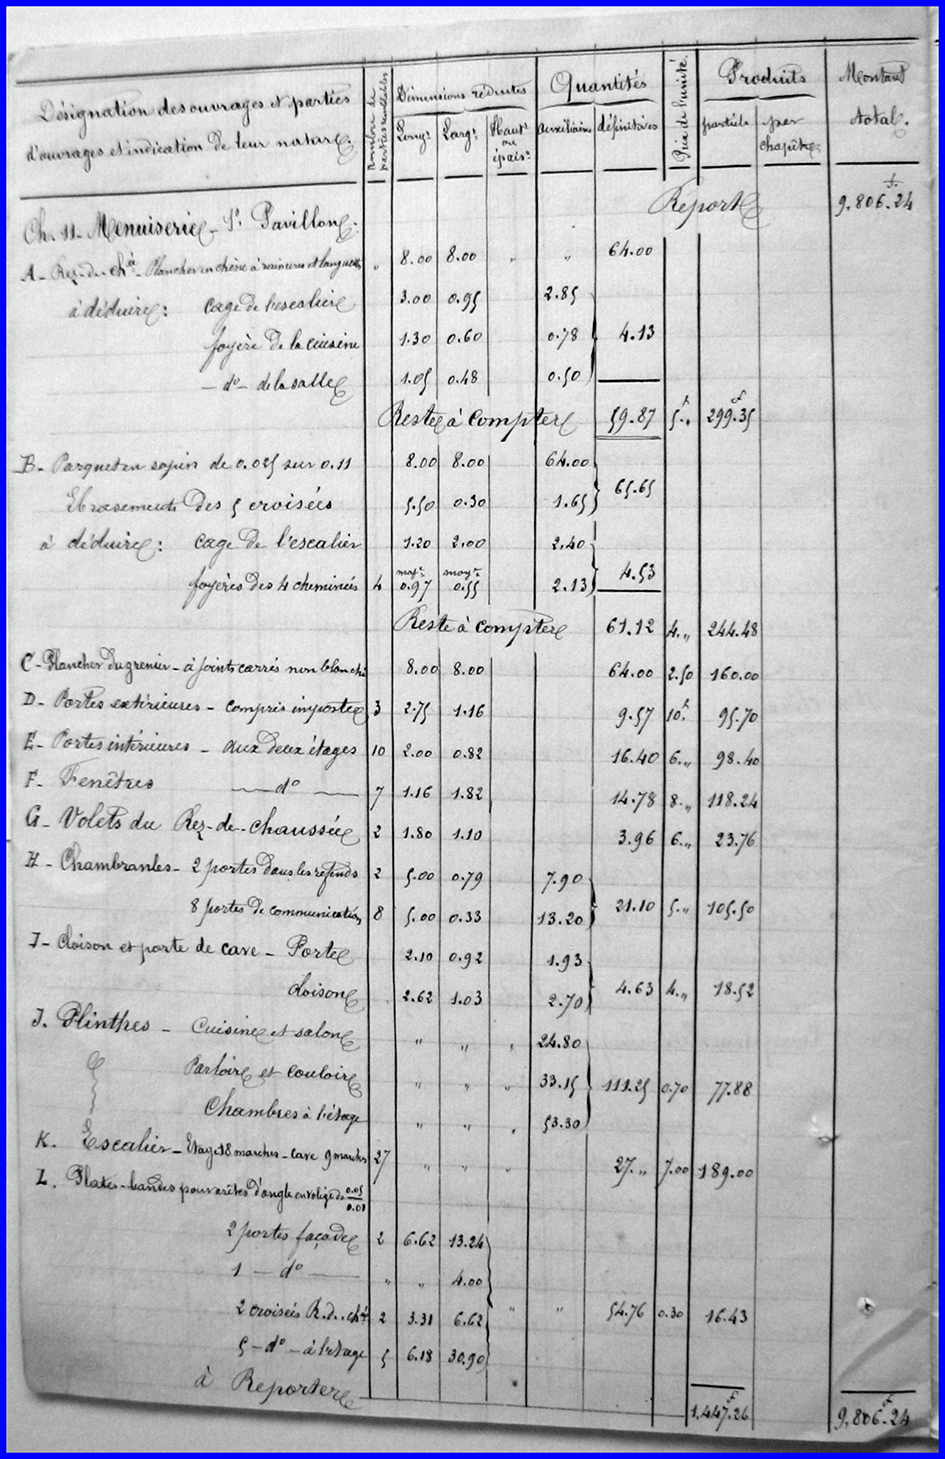 Désignation des ouvrages et parties d'ouvrages et indication de leur nature. | Nombre de parties semblables | Dimensions réduites | Quantités | Prix de l'unité | Produits | Montant total.
Longr | Largr | Hautr ou épaisr | auxiliaires | définitives | partiels | par chapitre
Report 9.806.24
Ch. 11. Menuiserie - 1r Pavillon.
A - Rez-de-chée - Plancher en chêne à rainures et languettes " 8.00 8.00 " " 64.00
à déduire : cage de l'escalier 3.00 0.95 2.85
foyère de la cuisine 1.30 0.60 0.78 4.13
- do - de la salle 1.05 0.48 0.50
Reste à compter 59.87 5f," 299.35
B - Parquet en sapin de 0.025 sur 0.11 8.00 8.00 64.00
Ebrasements des 5 croisées 5.50 0.30 1.65 65.65
à déduire : cage de l'escalier 1.20 2.00 2.40
foyères des 4 cheminées 4 moyne 0.97 moyne 0.55 2.13 4.53
Reste à compter 61.12 4." 244.48
C - Plancher du grenier - à joints carrés non blanchi 8.00 8.00 64.00 2.50 160.00
D - Portes extérieures - compris imposte 3 2.75 1.16 9.57 10f. 95.70
E - Portes intérieures - aux deux étages 10 2.00 0.82 16.40 6." 98.40
F - Fenêtres - do - 7 1.16 1.82 14.78 8." 118.24
G - Volets du Rez-de-chaussée 2 1.80 1.10 3.96 6." 23.76
H - Chambranles - 2 portes dans les refends 2 5.00 0.79 7.90
8 portes de communication 8 5.00 0.33 13.20 21.10 5." 105.50
I - Cloison et porte de cave - Porte 2.10 0.92 1.93
Cloison 2.62 1.03 2.70 4.63 4." 18.52
J. Plinthes - Cuisine et salon " " " 24.80
Parloir et couloir " " " 33.15 111.25 0.70 77.88
Chambres à l'étage " " " 53.30
K. Escalier - Etage 18 marches - cave 9 marches 27 " " " 27." 7.00 189.00
L. Plates-bandes pour arêtes d'angle en volige de 0.05/0.01
2 portes façade 2 6.62 13.24
1 - do - " " 4.00
2 croisées R.d.chée 2 3.31 6.62 " " 54.76 0.30 16.43
5 - do - à l'étage 5 6.18 30.90
à Reporter 1.447.26 9.806.24